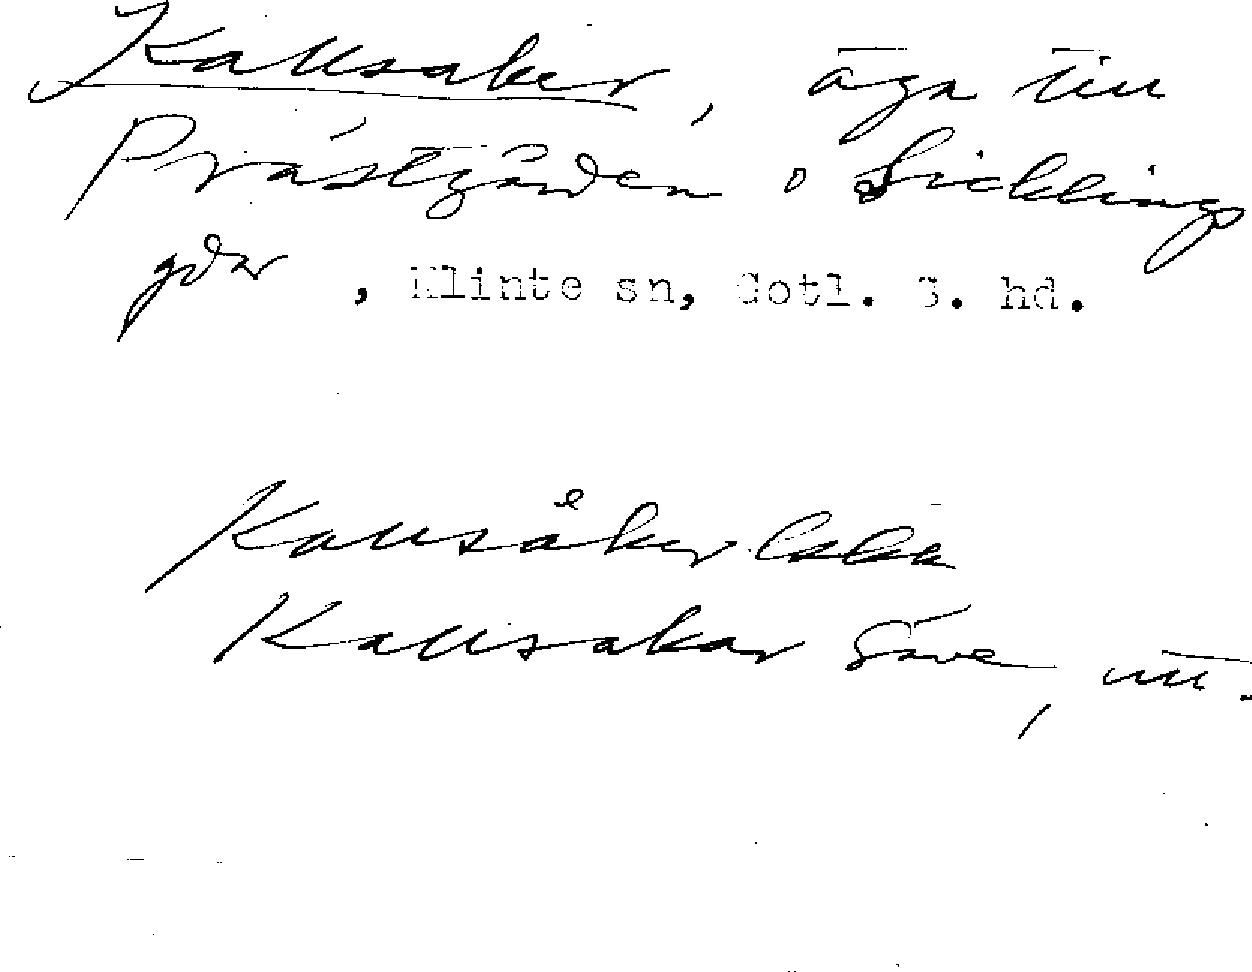 Kallsaker, äga till
Prästgården o Sicklings
gdar, Klinte sn, Gotl. S. hd.
Kallsåker
Kallsakar Säve,